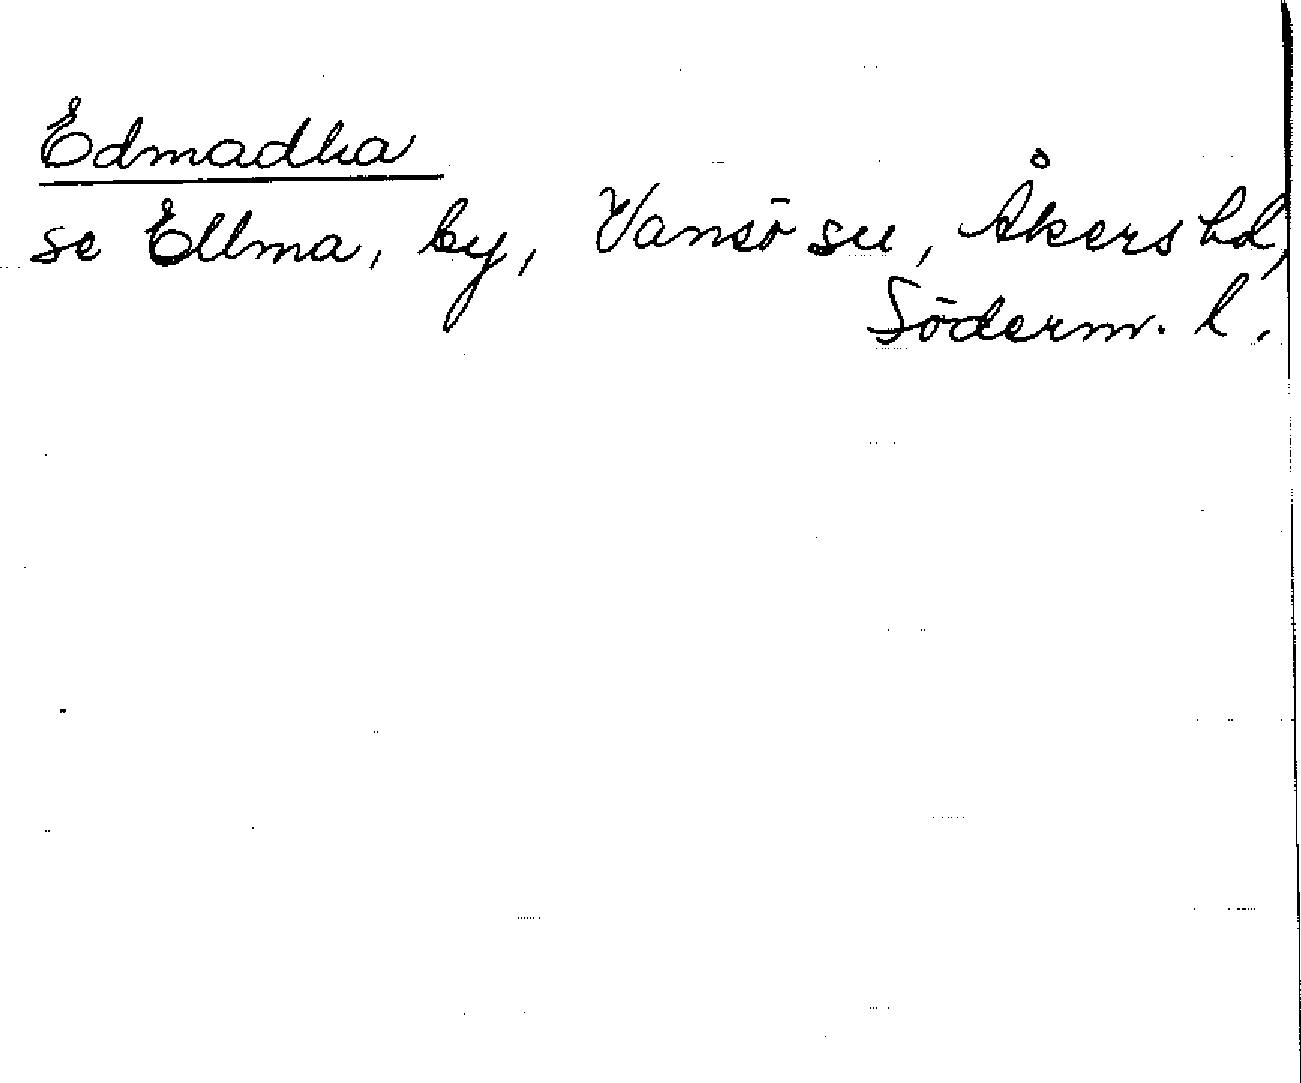 Edmadha
se Ellma, by, Vansö sn, Åkers hd,
Söderm. l.